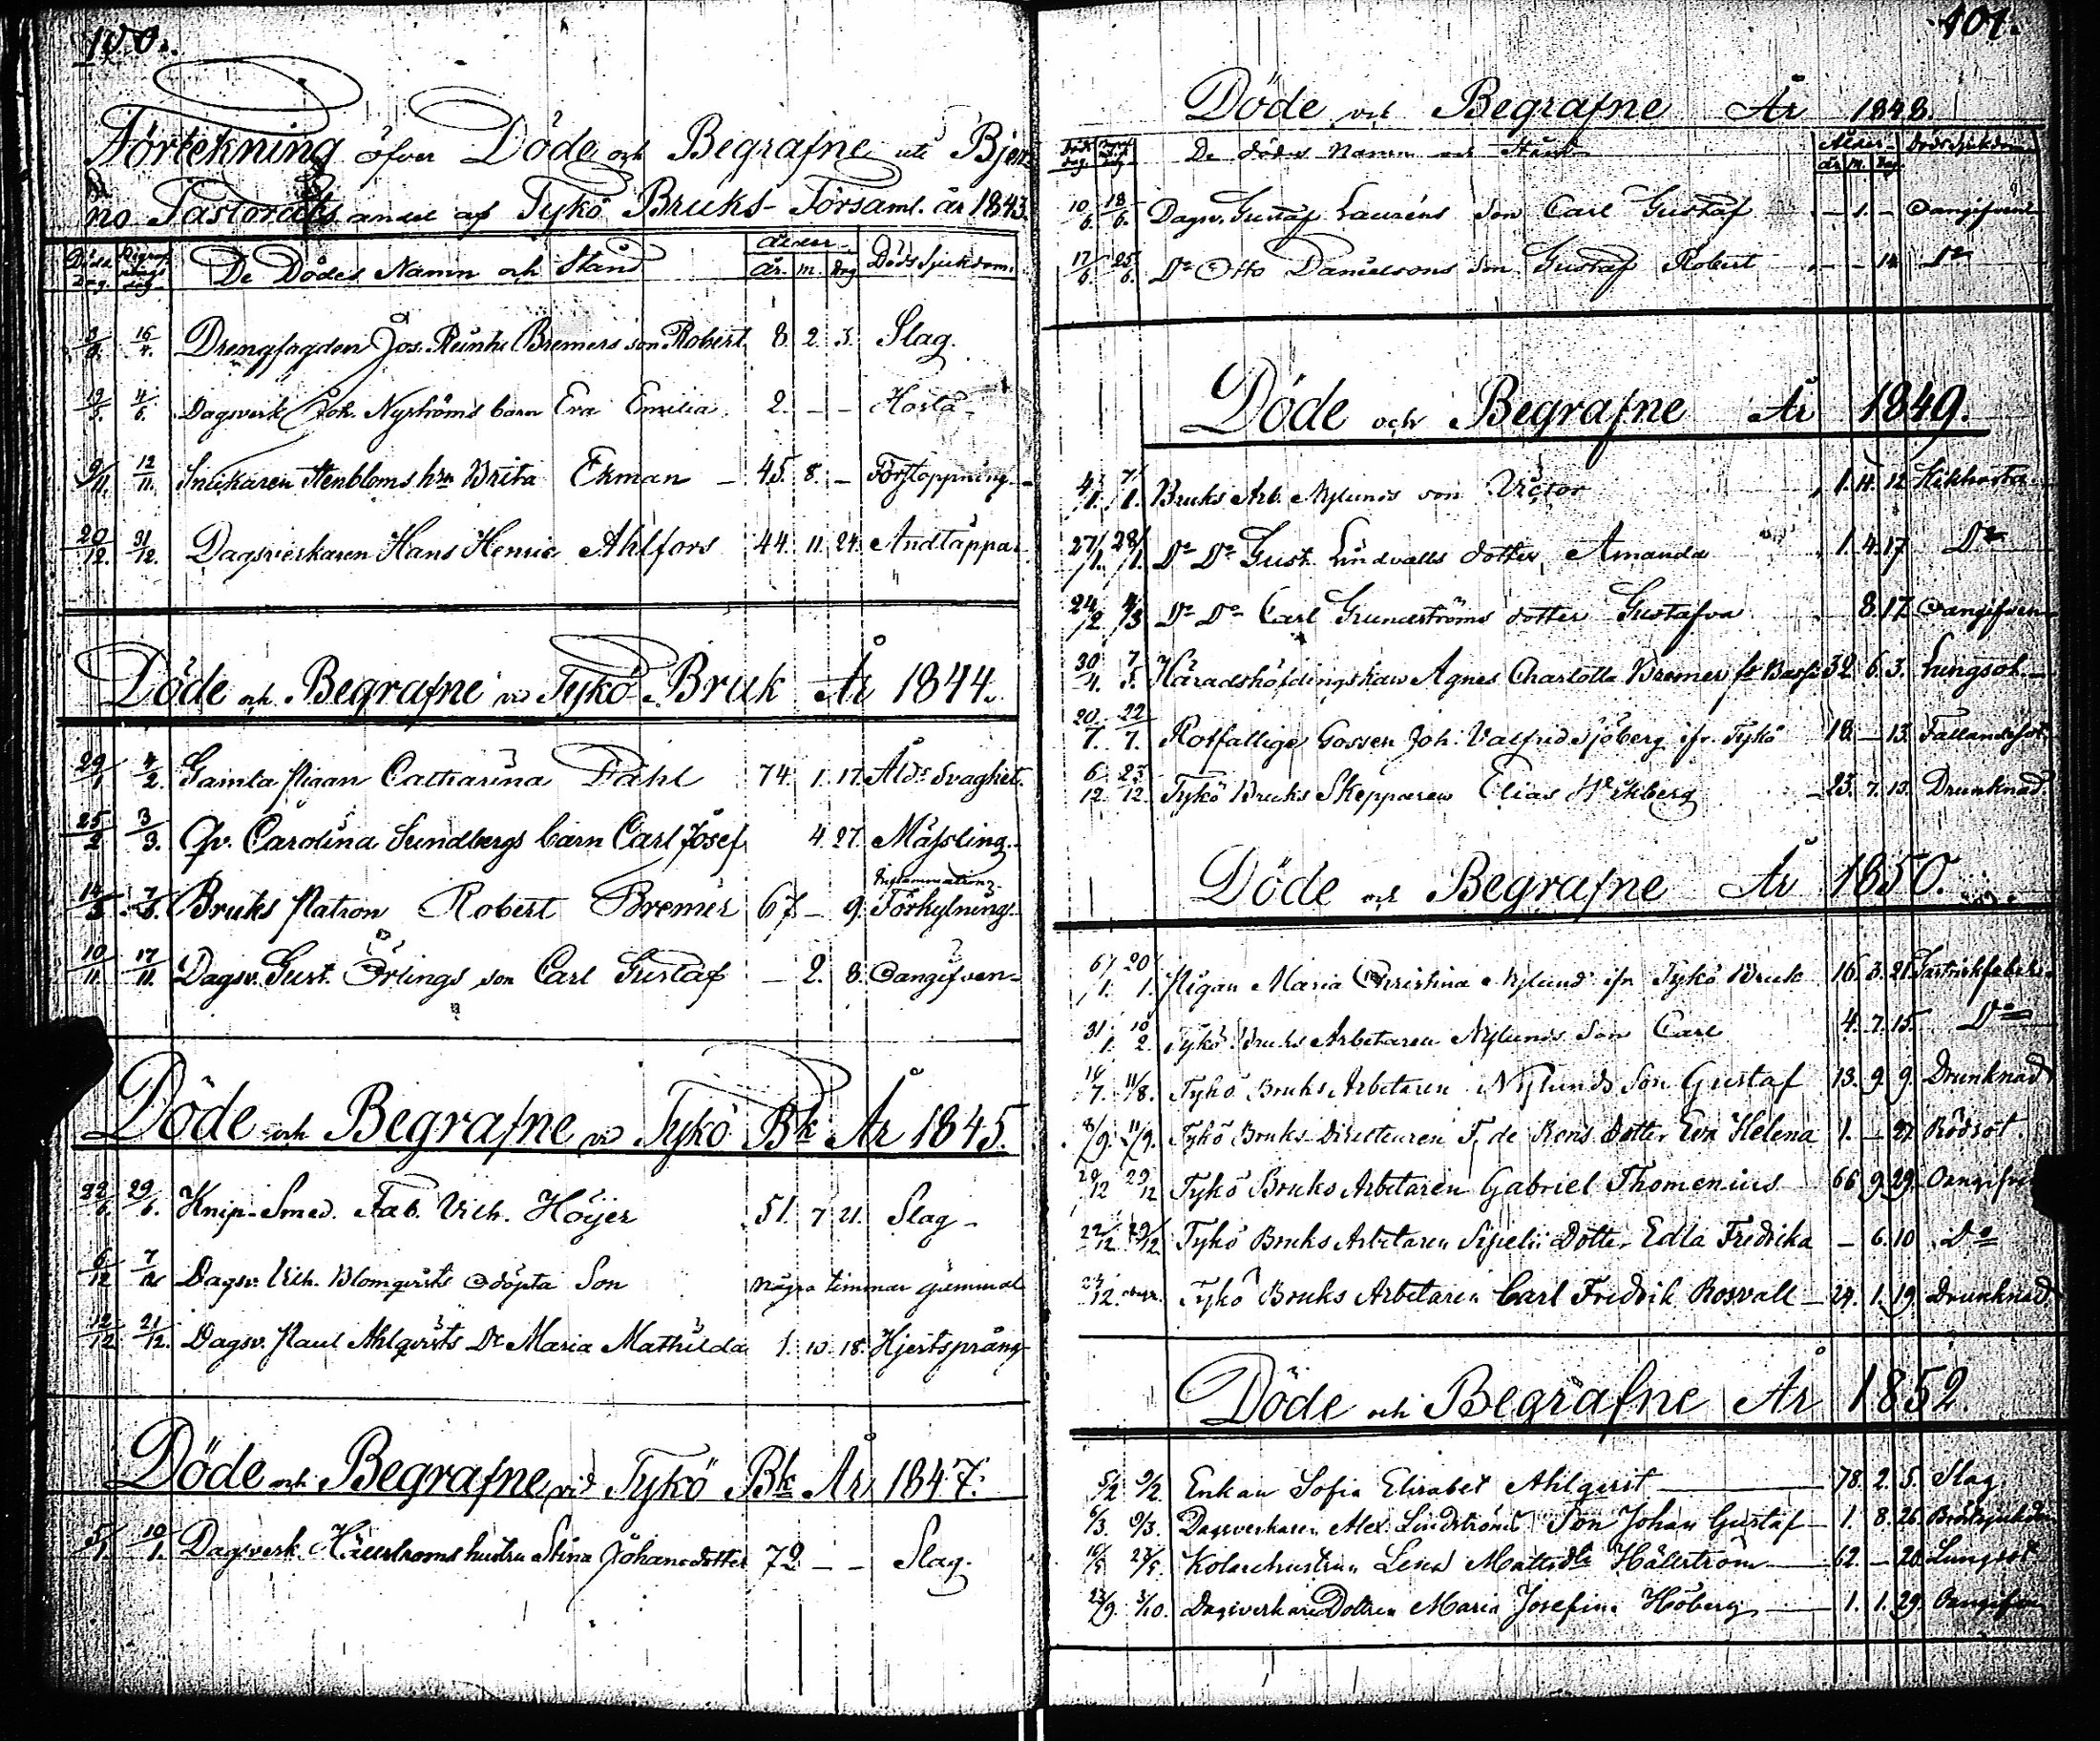 100.
Förtekning öfver Döde och Begrafne uti Bjer-
no Pastorats andel af Tykö Bruks-Församl. år 1843.
Döds dag Begrafnings dag De Dödes Namn och Stånd Ålder År. m. Dag Döds Sjukdom.
3/4. 16/4. Drengfogden Jos. Reinh. Bremers son Robert 8. 2. 3. Slag.
19/5. 4/6. Dagsverk. Joh. Nyströms barn Eva Emilia. 2. – – Hosta
9/11. 12/11. Snickaren Stenbloms h:ru Brita Ekman – 45. 8. – Förstoppning.
20/12. 31/12. Dagsverkaren Hans Henric Ahlfors 44. 11. 24. Andtäppa.
Döde och Begrafne vid Tykö Bruk År 1844.
29/1 4/2. Gamla Pigan Catharina Dahl 74. 1. 17. Åld:s Svaghet.
25/2 3/3. Qv. Carolina Sundbergs barn Carl Josef 4. 27. Mässling.
14/3 7/5. Bruks Patron Robert Bremer 67 – 9. Inflammations Förkylning.
10/11. 17/11. Dagsv. Gust. Örlings son Carl Gustaf – 2. 8. Oangifven
Döde och Begrafne vid Tykö Bk År 1845.
22/6. 29/6. Knip-Smed. Fab. Vilh. Höijer 51. 7 21. Slag –
6/12 7/12 Dagsv. Vilh. Blomqvists Odöpta Son några timmar gammal
12/12 21/12. Dagsv. Paul Ahlqvists D:r Maria Mathilda 1. 10. 18. Hjertsprång
Döde och Begrafne vid Tykö Bk År 1847.
5/1. 10/1. Dagsverk. hustru Stina Johansdotter 72 – – Slag.
101.
Döde och Begrafne År 1848.
Döds dag De dödes Namn och Stånd Ålder år m. Dag Döds Sjukdom
10/6. 18/6. Dagsv. Gustaf Lauréns Son Carl Gustaf – 1. – Oangifven
17/6. 25/6. D:o Otto Danielsons Son Gustaf Robert – – 14 D:o
Döde och Begrafne År 1849.
4/1. 7/1. Bruks Arb. Nylunds son Victor 1. 4. 12 Kikhosta
27/1. 28/1. D:o D:o Gust. Lindvalls dotter Amanda 1. 4. 17 D:o
24/2 4/3 D:o D:o Carl Grundströms dotter Gustafva 8. 17. Oangifven
30/4. 7/5. Häradshöfdingskan Agnes Charlotta Bremer 32. 6. 3. Lungsot.
20/7. 22/7. Rotfallige Gossen Joh. Valfrid Sjöberg ifr. Tykö 12 – 13 Fallandesot
6/12 23/12. Tykö Bruks Skepparen Elias Wikberg 23. 7. 13. Drunknad.
Döde och Begrafne År 1850.
6/1. 20/1. Pigan Maria Christina Nylund ifr Tykö Bruk 16. 3. 21.
31/1. 10/2. Tykö Bruks Arbetaren Nylunds Son Carl 4. 7. 15. D:o
14/7. 11/8. Tykö Bruks Arbetaren Nylunds Son Gustaf 13. 9. 9. Drunknad
8/9. 11/9. Tykö Bruks Directeuren F. de Rons dotter Eva Helena 1. – 27 Rödsot.
20/12 29/12 Tykö Bruks Arbetaren Gabriel Thomenius 66 9. 29. Oangifven
22/12 29/12 Tykö Bruks Arbetaren Sipelii Dotter Edla Fredrika – 6. 10 D:o
23/12. Tykö Bruks Arbetaren Carl Fredrik Rosvall – 24. 1. 19. Drunknad
Döde och Begrafne År 1852.
5/2 9/2. Enkan Sofia Elisabet Ahlqvist 78. 2. 5. Slag.
6/3. 9/3. Dagsverkaren Alex. Lindströms Son Johan Gustaf – 1. 8. 26. Bröstsjukdom
16/5 27/5. Kolarehustrun Lena Mattsdtr Hällström – 62. – 20. Lungsot
23/9. 3/10. Dagsverkare Dottren Maria Josefina Höberg – 1. 1. 29. Oangifven